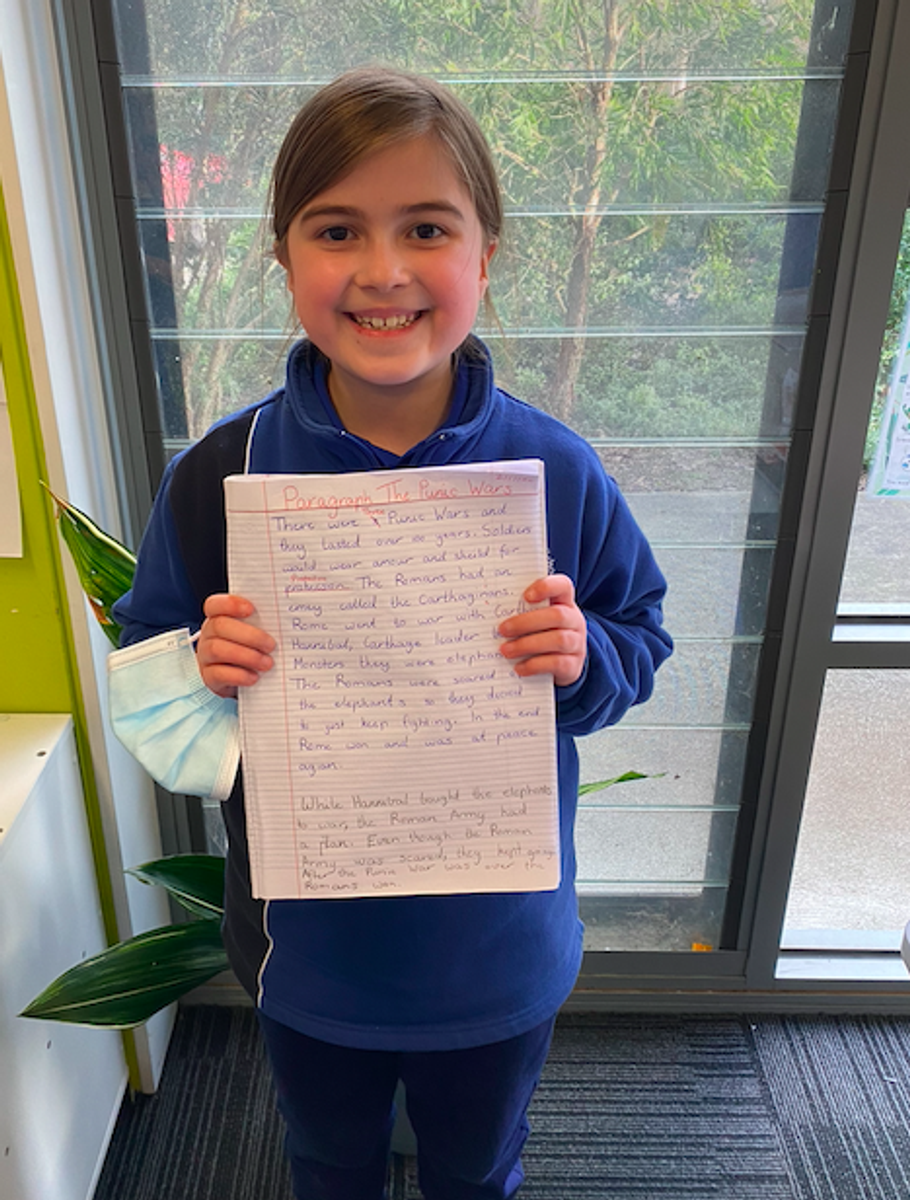 Paragraph The Punic Wars
There were three Punic Wars and
they lasted over 100 years. Soldiers
would wear amour and sheild for
Protection
protession. The Romans had an
emey called the Carthaginans.
Rome went to war with Carth
Hannibal, Carthage leader
Monsters they were elephan
The Romans were scared
the elephants so they dicied
to just keep fighting. In the end
Rome won and was at pleace
agian.
While Hannibal bought the elephants
to war, the Roman Army had
a plan. Even though the Roman
Army was scared, they kept going.
After the Punic War was over the
Romans won.